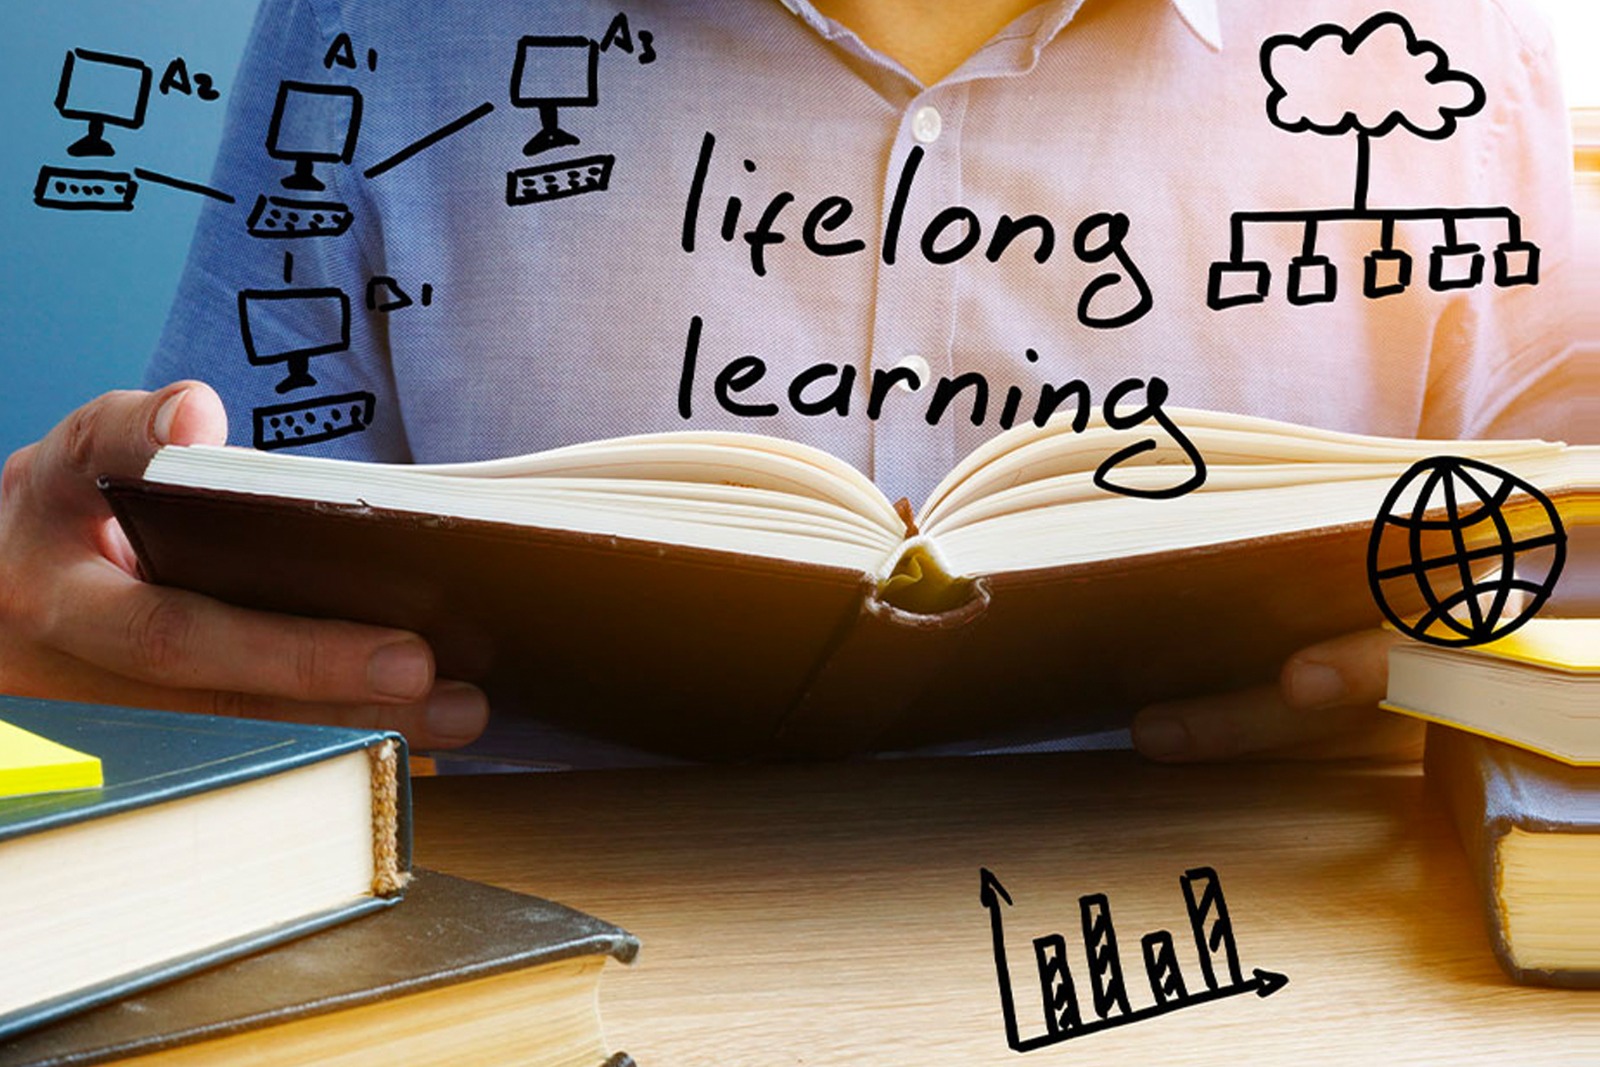 A2
A1
A3
B1
lifelong
learning